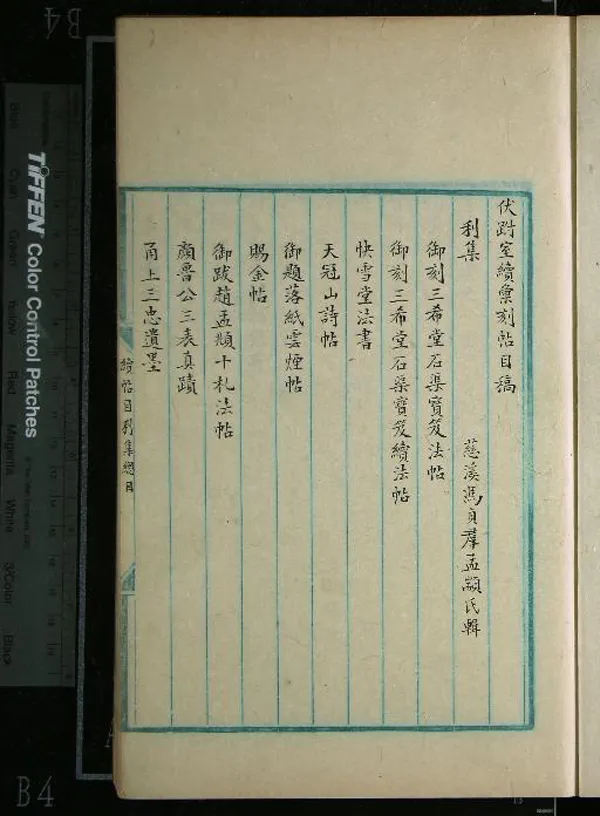 伏跗室續彙刻帖目稿
利集
慈溪馮貞羣孟顓氏輯
御刻三希堂石渠寶笈法帖
御刻三希堂石渠寶笈續法帖
快雪堂法書
天冠山詩帖
御題落紙雲煙帖
賜金帖
御跋趙孟頫十札法帖
顏魯公三表真蹟
甬上三忠遺墨
續帖目利集總目
TIFFEN Color Control Patches
Blue
Cyan
Green
Yellow
Red
Magenta
White
3/Color
Black
B4
B4